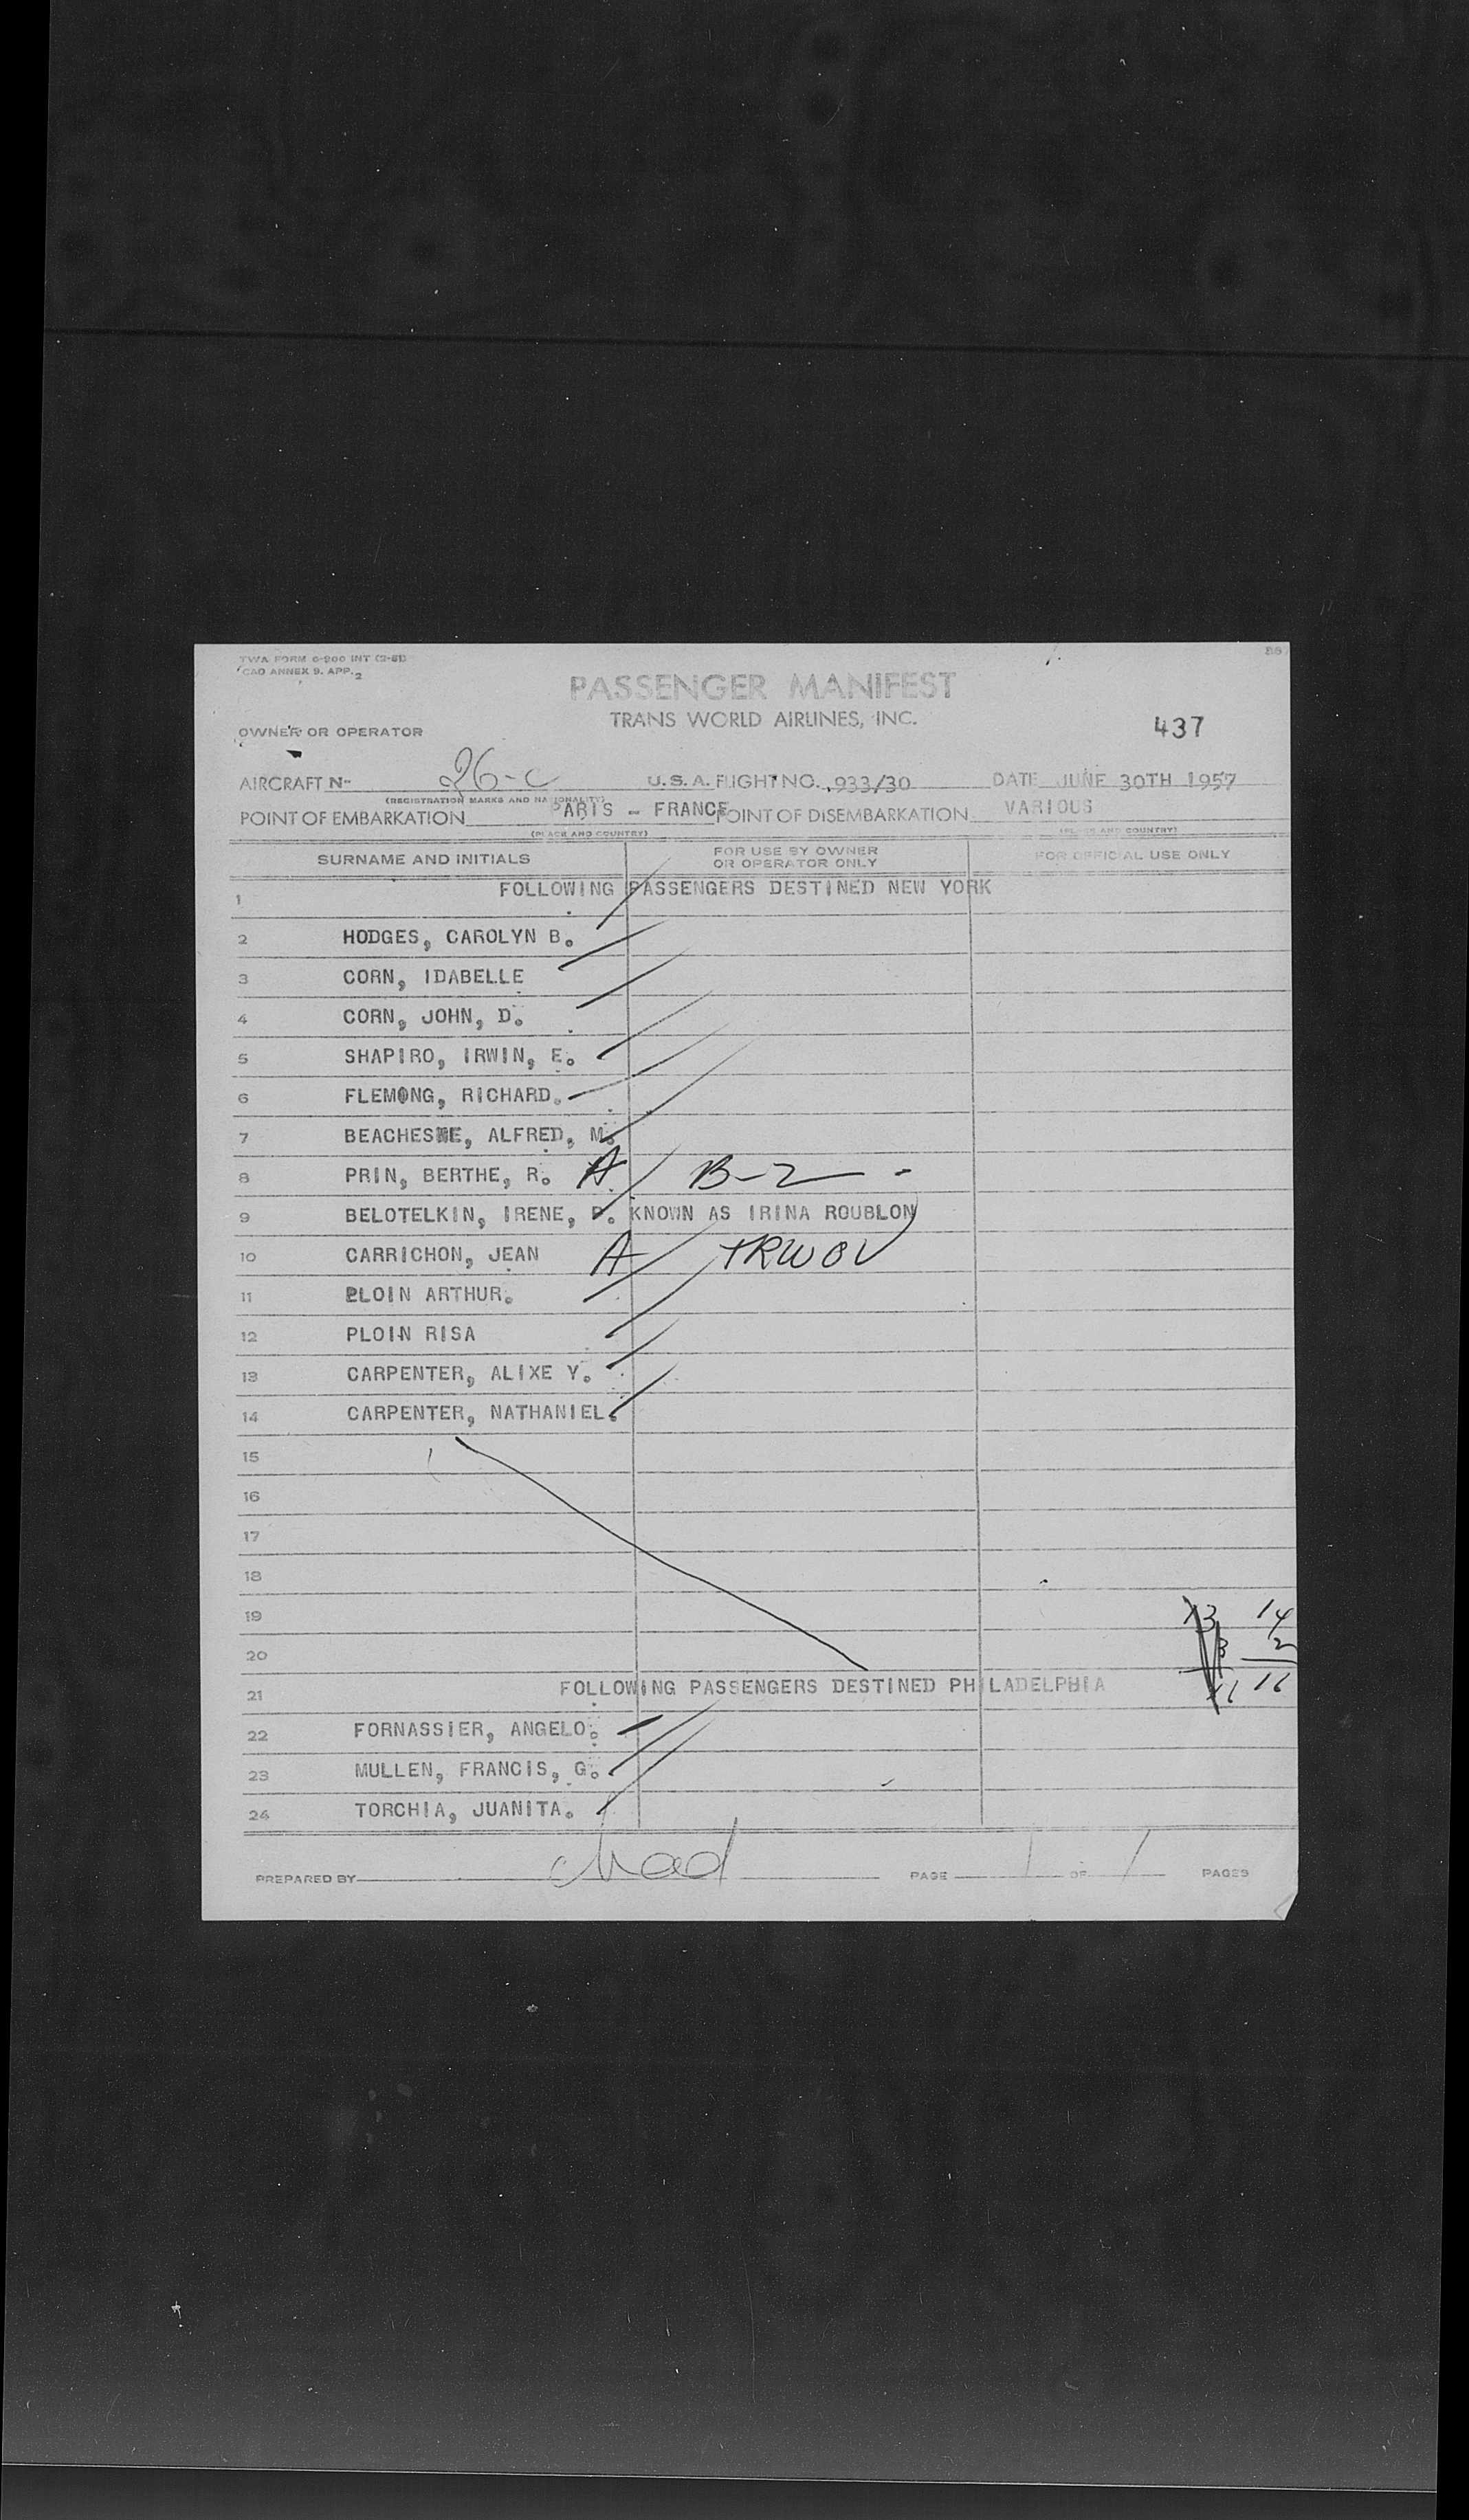 TWA FORM 6-900 INT (2-51)
CAO ANNEX 9. APP. 2
86
PASSENGER MANIFEST
TRANS WORLD AIRLINES, INC.
437
OWNER OR OPERATOR
AIRCRAFT N- 26-C U.S.A. FLIGHT NO. 933/30 DATE JUNE 30TH 1957
(REGISTRATION MARKS AND NATIONALITY)
POINT OF EMBARKATION PARIS - FRANCE POINT OF DISEMBARKATION VARIOUS
(PLACE AND COUNTRY) (PLACE AND COUNTRY)
SURNAME AND INITIALS FOR USE BY OWNER OR OPERATOR ONLY FOR OFFICIAL USE ONLY
1 FOLLOWING PASSENGERS DESTINED NEW YORK
2 HODGES, CAROLYN B.
3 CORN, IDABELLE
4 CORN, JOHN, D.
5 SHAPIRO, IRWIN, E.
6 FLEMONG, RICHARD.
7 BEACHESNE, ALFRED, M.
8 PRIN, BERTHE, R. A B-2 -
9 BELOTELKIN, IRENE, P. KNOWN AS IRINA ROUBLON)
10 CARRICHON, JEAN A TRWOV
11 PLOIN ARTHUR.
12 PLOIN RISA
13 CARPENTER, ALIXE Y.
14 CARPENTER, NATHANIEL.
15
16
17
18
19 13 14
20 3 2
21 FOLLOWING PASSENGERS DESTINED PHILADELPHIA 11 16
22 FORNASSIER, ANGELO.
23 MULLEN, FRANCIS, G.
24 TORCHIA, JUANITA.
PREPARED BY PAGE 1 OF 1 PAGES